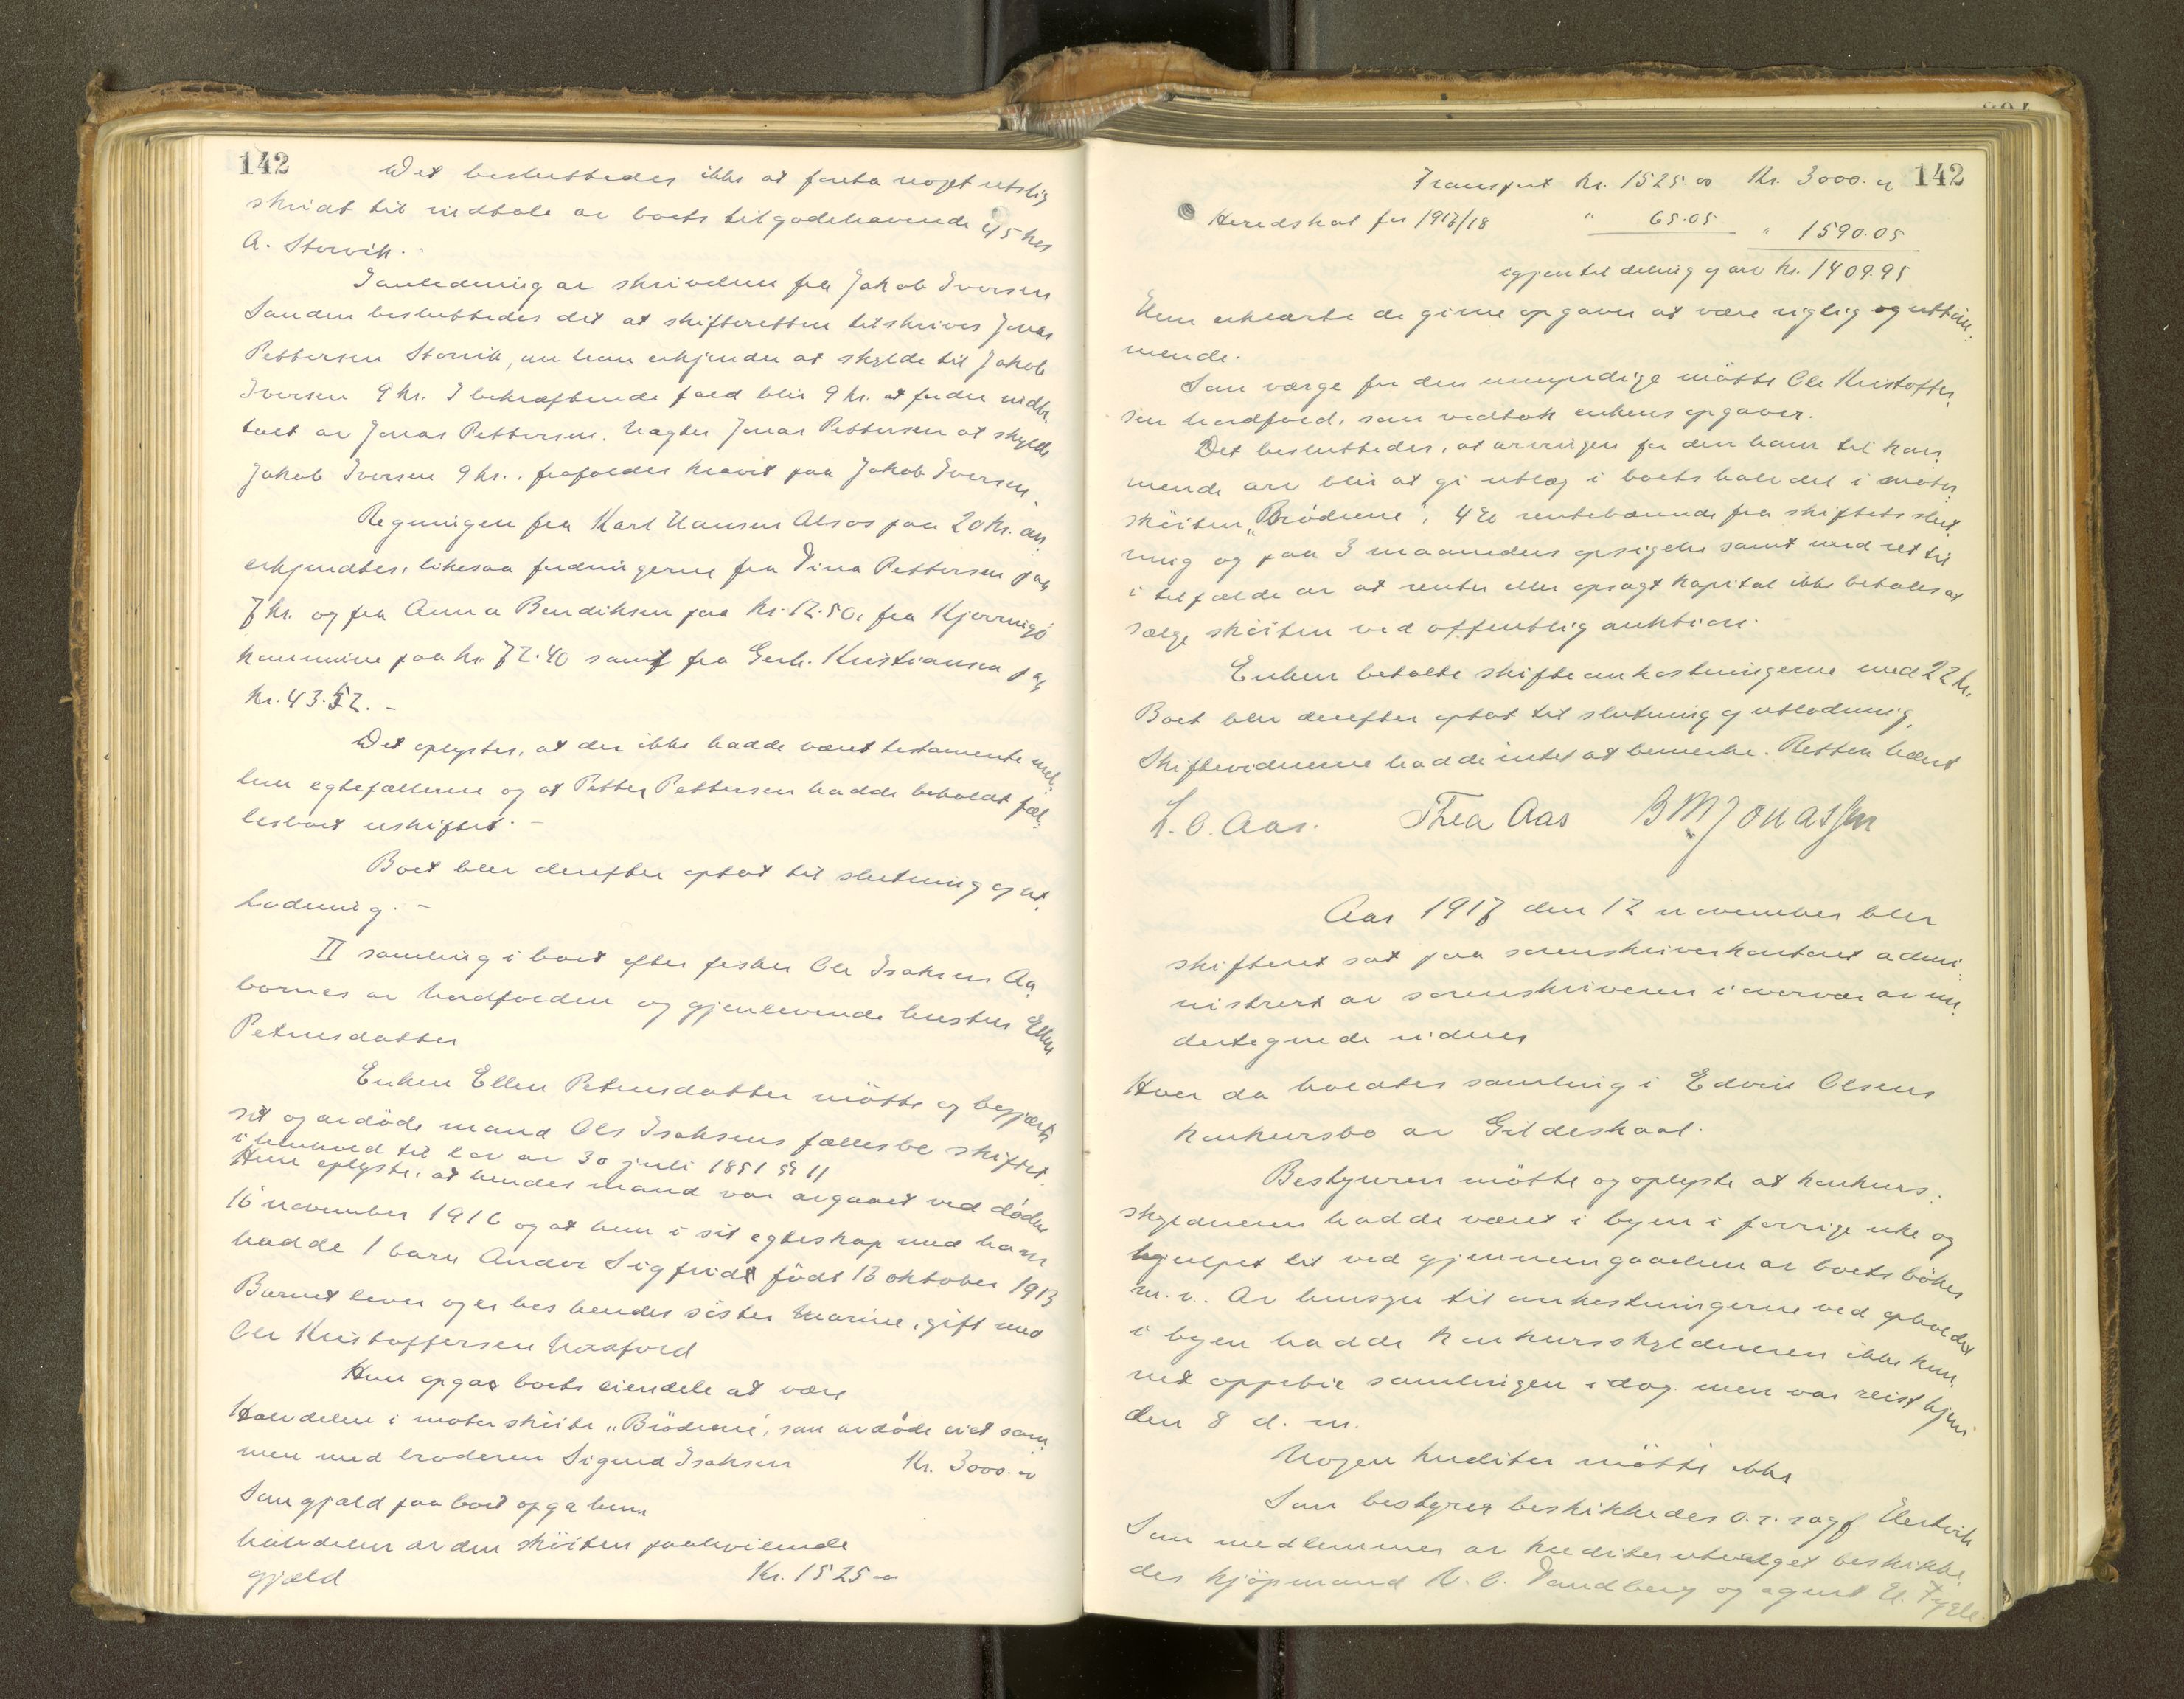 142
Det besluttedes ikke at foreta noget retslig
skridt til indtale av boets tilgodehavende 45 hos
A. Storvik. -
I anledning av skrivelsen fra Jakob Iversen
Sanden besluttedes det at skifteretten tilskriver Jonas
Pettersen Storvik, om han erkjender at skylde til Jakob
Iversen 9 kr. I bekræftende fald blir 9 kr. at fordre indbe
talt av Jonas Pettersen. Nægter Jonas Pettersen at skylde
Jakob Iversen 9 kr., frafaldes kravet paa Jakob Iversen.
Regningen fra Karl Hansen Alsos paa 20 kr. an
erkjendtes, likesaa fordringerne fra Dina Pettersen paa
7 kr. og fra Anna Bendiksen paa kr. 12.50, fra Kjerringø
kommune paa kr. 72.40 samt fra Gerh. Kristiansen paa
kr. 43.52. -
Det oplystes, at der ikke hadde været testamente mel
lem egtefællerne og at Petter Pettersen hadde beholdt fæl
lesboet uskiftet. -
Boet blev derefter optat til slutning og ut
lodning. -
II samling i boet efter fisker Ole Isaksen Aa
bornes av Nordfolden og gjenlevende hustru Ellen
Petersdatter
Enken Ellen Petersdatter møtte og begjærte
sit og avdøde mand Ole Isaksens fællesbo skiftet
i henhold til lov av 30 juli 1851 § 11
Hun oplyste, at hendes mand var avgaaet ved døden
16 november 1916 og at hun i sit egteskap med ham
hadde 1 barn Andor Sigfrid født 13 oktober 1913
Barnet lever og er hos hendes søster Marine, gift med
Ole Kristoffersen Nordfold
Hun opgav boets eiendele at være
Halvdelen i motorskøite "Brødrene", som avdøde eiet sam
men med broderen Sigurd Isaksen Kr. 3000.00
Som gjæld paa boet opga hun
halvdelen av den skøiten paahvilende
gjæld Kr. 1525.00
142
Transport kr. 1525.00 Kr. 3000.00
Heredskat for 1917/18 " 65.05 " 1590.05
igjen til deling og arv kr. 1409.95
Hun erklærte de givne opgaver at være rigtig og uttøm
mende.
Som værge for den umyndige møtte Ole Kristoffer
sen Nordfold, som vedtok enkens opgaver.
Det besluttedes, at arvingen for den ham til kom
mende arv blir at gi utlæg i boets halvdel i motor
skøiten "Brødrene", 4% rentebærende fra skiftets slut
ning og paa 3 maaneders opsigelse samt med ret til
i tilfælde av at renter eller opsagt kapital ikke betales at
sælge skøiten ved offentlig auktion.
Enken betalte skifteomkostningerne med 22 kr.
Boet blev derefter optat til slutning og utlodning
Skiftevidnerne hadde intet at bemerke. Retten hævet
L. O. Aas. Thea Aas B M Jonassen
Aar 1917 den 12 november blev
skifteret sat paa sorenskriverkontoret admi
nistrert av sorenskriveren i overvær av un
dertegnede vidner
Hvor da holdtes samling i Edvin Olsens
konkursbo av Gildeskaal.
Bestyreren møtte og oplyste at konkurs
skyldneren hadde været i byen i forrige uke og
hjulpet til ved gjennemgaaelsen av boets bøker
m.v. Av hensyn til omkostningerne ved opholdet
i byen hadde konkursskyldneren ikke kun
net oppebie samlingen idag men var reist hjem
den 8 d. m.
Nogen kreditor møtte ikke
Som bestyrer beskikkedes o.r. sagf Elertvik
Som medlemmer av kreditorutvalget beskikke
des kjøpmand N. C. Tandberg og agent H. Fygle